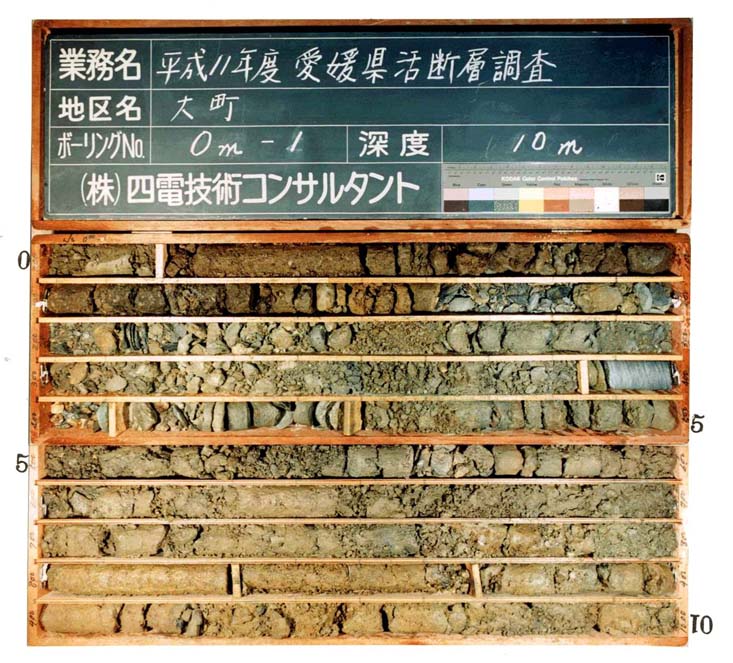 業務名 平成11年度 愛媛県活断層調査
地区名 大町
ボーリングNo. Om-1 深度 10m
KODAK Color Control Patches
Blue Cyan Green Yellow Red Magenta White
Kodak
(株)四電技術コンサルタント
0
5
5
10